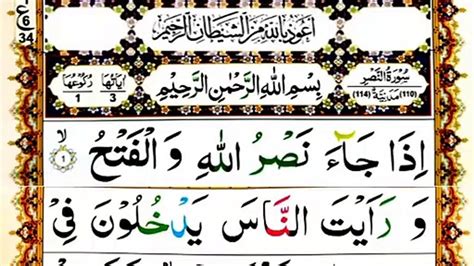 ع
6
34
اَعُوْذُ بِاللّٰهِ مِنَ الشَّيْطَانِ الرَّجِيْمِ
سُوْرَةُ النَّصْرِ
(110) مَدَنِيَّةٌ (114)
بِسْمِ اللّٰهِ الرَّحْمٰنِ الرَّحِيْمِ
اٰيَاتُهَا رُكُوْعُهَا
3 1
اِذَا جَآءَ نَصْرُ اللّٰهِ وَ الْفَتْحُ ۙ﴿۱﴾
وَ رَاَيْتَ النَّاسَ يَدْخُلُوْنَ فِيْ